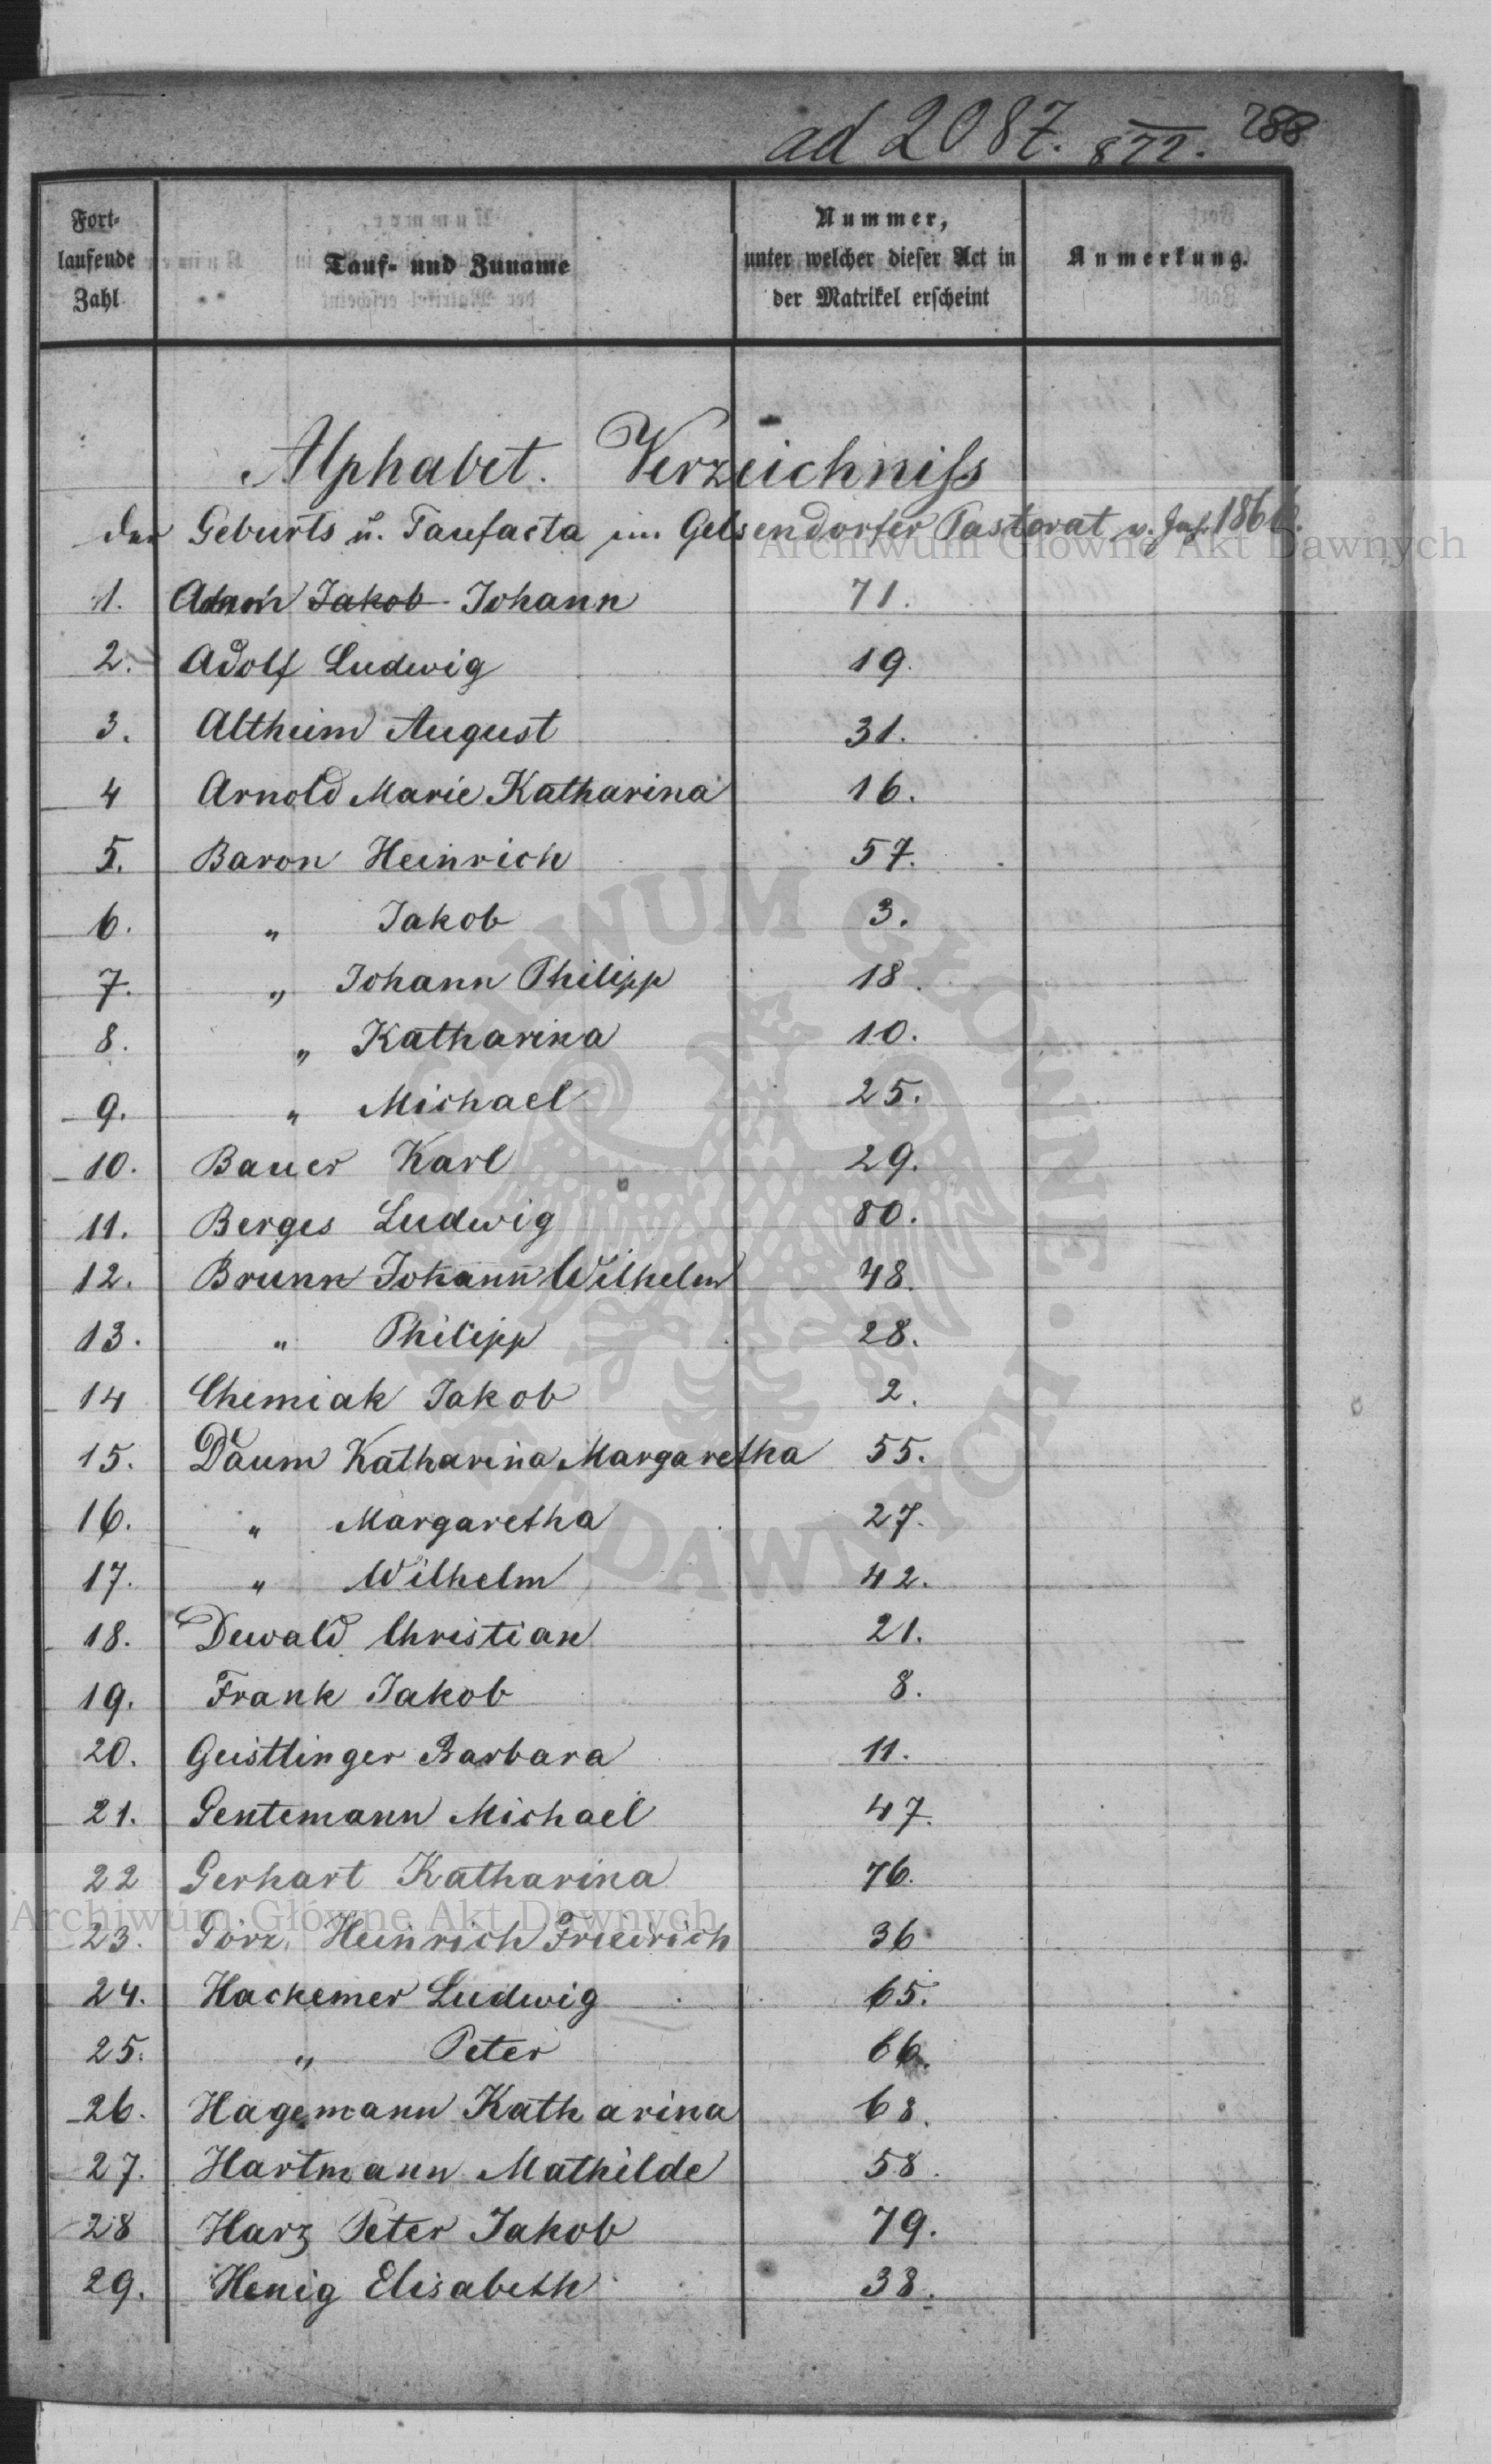 ad 2087. 872. 288
Fort-
laufende
Zahl
Tauf- und Zuname
Nummer,
unter welcher dieser Act in
der Matrikel erscheint
Anmerkung.
Alphabet. Verzeichniss
der Geburts u. Taufacta im Gelsendorfer Pastorat v. Jah. 1866.
1. Adam Jakob Johann 71.
2. Adolf Ludwig 19.
3. Altheim August 31.
4 Arnold Marie Katharina 16.
5. Baron Heinrich 57.
6. " Jakob 3.
7. " Johann Philipp 18.
8. " Katharina 10.
9. " Michael 25.
10. Bauer Karl 29.
11. Berges Ludwig 80.
12. Brunn Johann Wilhelm 48.
13. " Philipp 28.
14 Chemiak Jakob 2.
15. Daum Katharina Margaretha 55.
16. " Margaretha 27.
17. " Wilhelm 42.
18. Dewald Christian 21.
19. Frank Jakob 8.
20. Geistlinger Barbara 11.
21. Gentemann Michael 47.
22 Gerhart Katharina 76.
23. Görz Heinrich Friedrich 36
24. Hackemer Ludwig 65.
25. " Peter 66.
26. Hagemann Katharina 68.
27. Hartmann Mathilde 58.
28 Harz Peter Jakob 79.
29. Henig Elisabeth 38.
Archiwum Główne Akt Dawnych
Archiwum Główne Akt Dawnych
ARCHIWUM GŁÓWNE AKT DAWNYCH